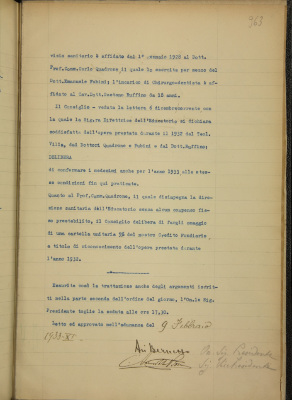 363
vizio sanitario è affidato dal 1° gennaio 1928 al Dott.
Prof.Comm.Carlo Quadrone, il quale lo esercita per mezzo del
Dott.Emanuele Fubini; l'incarico di Chirurgo-dentista è af-
fidato al Cav.Dott.Gaetano Ruffino da 18 anni.
Il Consiglio - veduta la lettera 6 dicembre con
la quale la Sig.ra Direttrice dell'Educatorio si dichiara
soddisfatta dell'opera prestata durante il 1932 dal
dai Dottori Quadrone e Fubini e dal Dott.Ruffino;
DELIBERA
di confermare i medesimi anche per l'anno 1933 alle stes-
se condizioni fin qui praticate.
Quanto al Prof.Comm.Quadrone, il quale disimpegna la dire-
zione sanitaria dell'Educatorio senza alcun compenso fis-
so prestabilito, il Consiglio delibera di fargli omaggio
di una cartella unitaria 5% del nostro Credito Fondiario,
a titolo di riconoscimento dell'opera prestata durante
l'anno 1932.
Esaurita così la trattazione anche degli argomenti iscrit-
ti nella parte seconda dell'ordine del giorno, l'On.le Sig.
Presidente toglie la seduta alle ore 17,30.
Letto ed approvato nell'adunanza del 9 Febbraio
1933-XI°.
Il Presidente